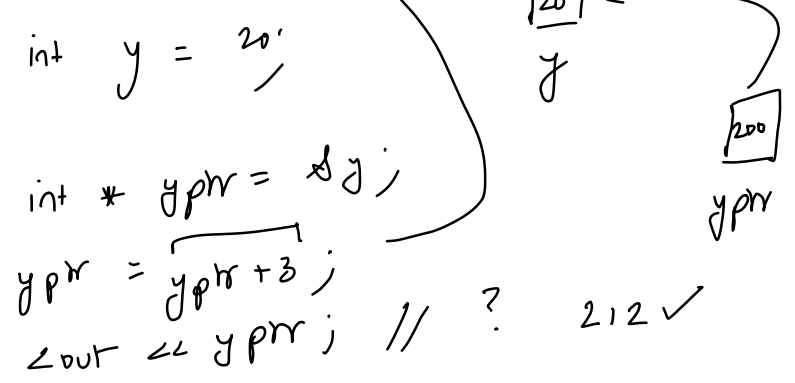 int y = 20;
20
y
200
yptr
int * yptr = &y;
yptr = yptr + 3;
cout << yptr; // ? 212 ✓